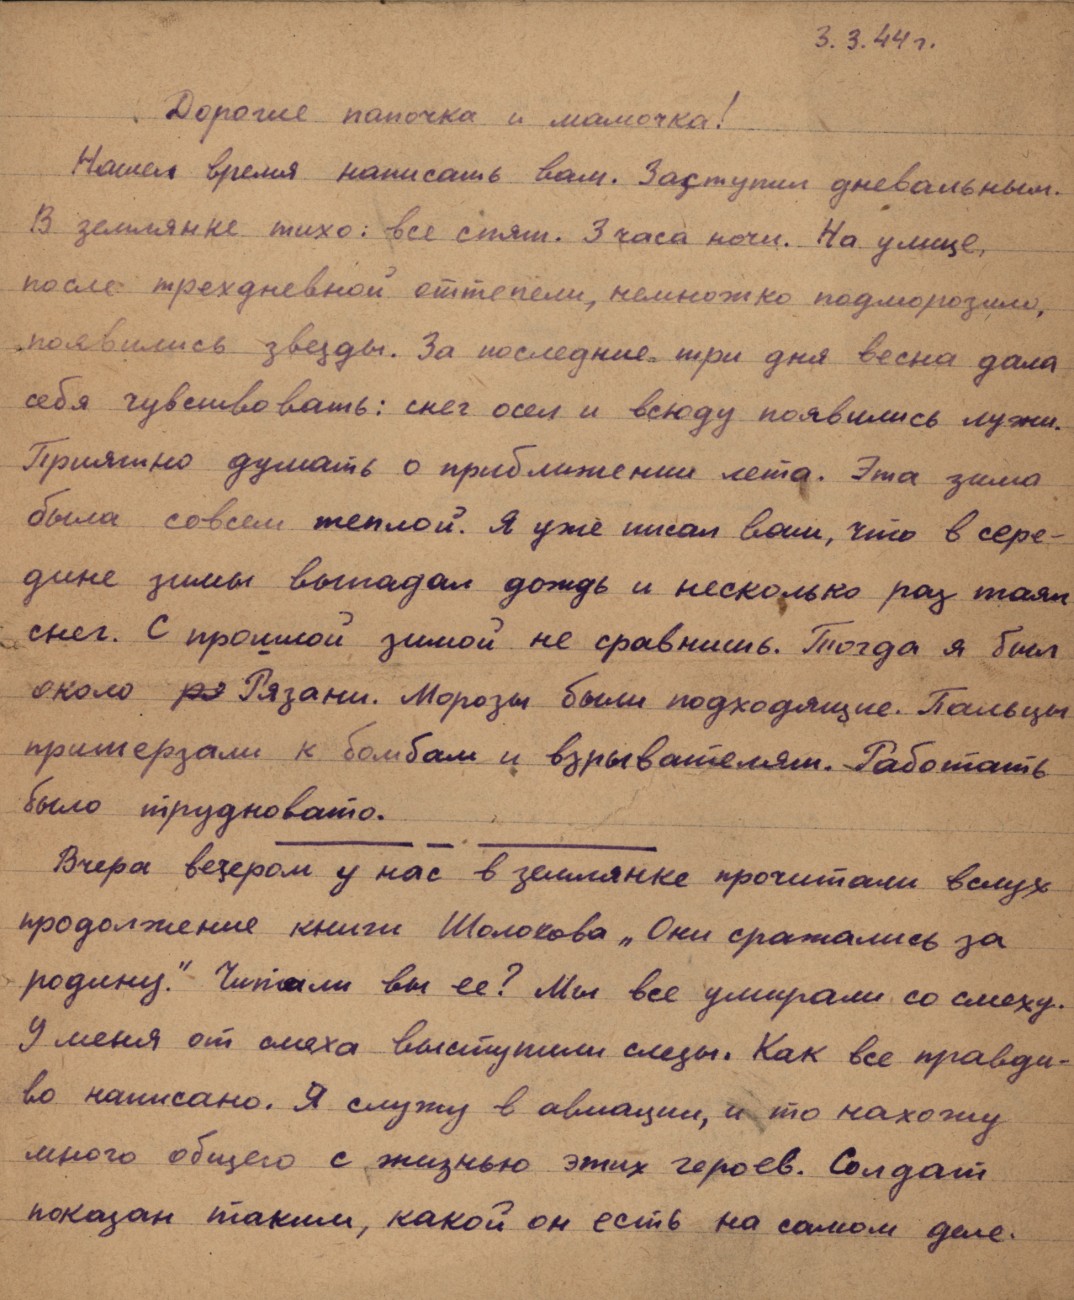 3.3.44г.
Дорогие папочка и мамочка!
Нашел время написать вам. Заступил дневальным.
В землянке тихо: все спят. 3 часа ночи. На улице,
после трехдневной оттепели, немножко подморозило,
появились звезды. За последние три дня весна дала
себя чувствовать: снег осел и всюду появились лужи.
Приятно думать о приближении лета. Эта зима
была совсем теплой. Я уже писал вам, что в сере-
дине зимы выпадал дождь и несколько раз таял
снег. С прошлой зимой не сравнишь. Тогда я был
около Рязани. Морозы были подходящие. Пальцы
примерзали к бомбам и взрывателям. Работать
было трудновато.
Вчера вечером у нас в землянке прочитали вслух
продолжение книги Шолохова „Они сражались за
родину." Читали вы ее? Мы все умирали со смеху.
У меня от смеха выступили слезы. Как все правди-
во написано. Я служу в авиации, и то нахожу
много общего с жизнью этих героев. Солдат
показан таким, какой он есть на самом деле.